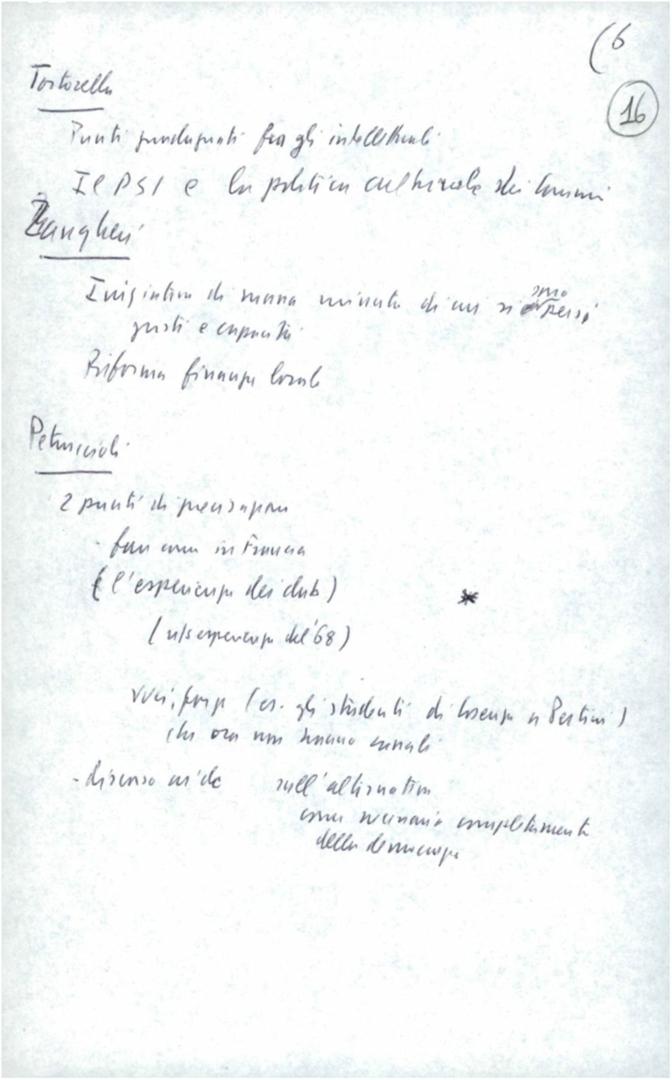 (6
16
Tortorella
Punti guadagnati fra gli intellettuali
Il PSI e la politica culturale dei Comuni
Zangheri
Iniziativa di massa di cui si sono persi
gusti e capacità
Riforma finanza locale
Petruccioli
2 punti di
fare come in Francia
(l'esperienza dei club)
(n/s esperienza del '68)
voci, forze (es. gli studenti di Cosenza a Pertini)
che ora non hanno canali
- discorso sull'alternativa
come necessario completamento
della democrazia